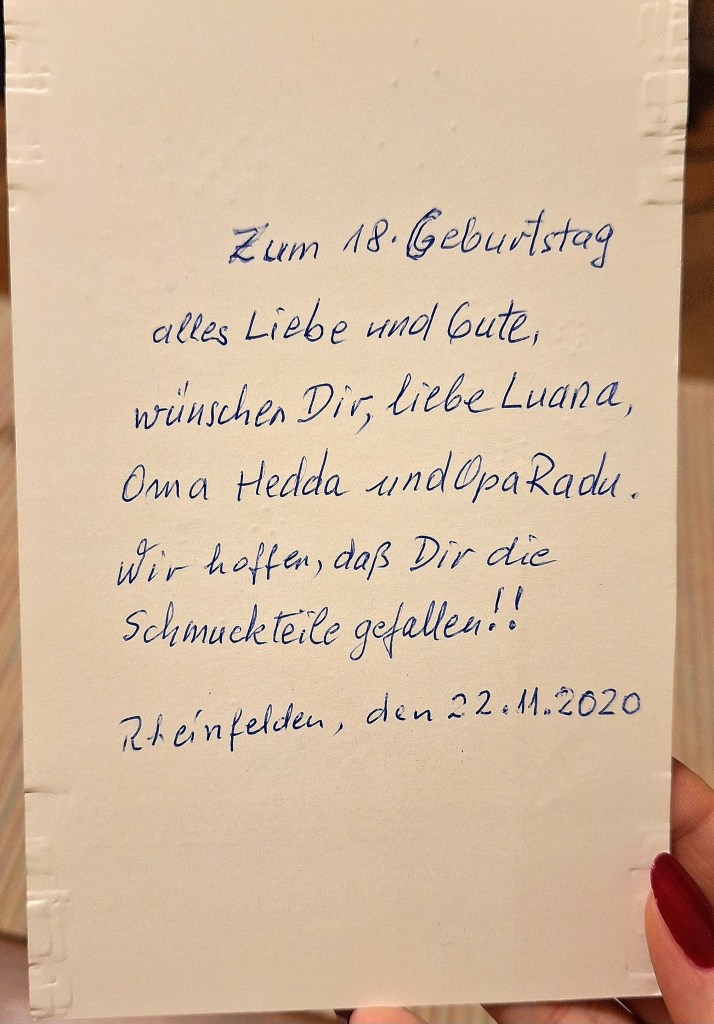 Zum 18. Geburtstag
alles Liebe und Gute,
wünschen Dir, liebe Luana,
Oma Hedda und Opa Radu.
Wir hoffen, daß Dir die
Schmuckteile gefallen!!
Rheinfelden, den 22.11.2020